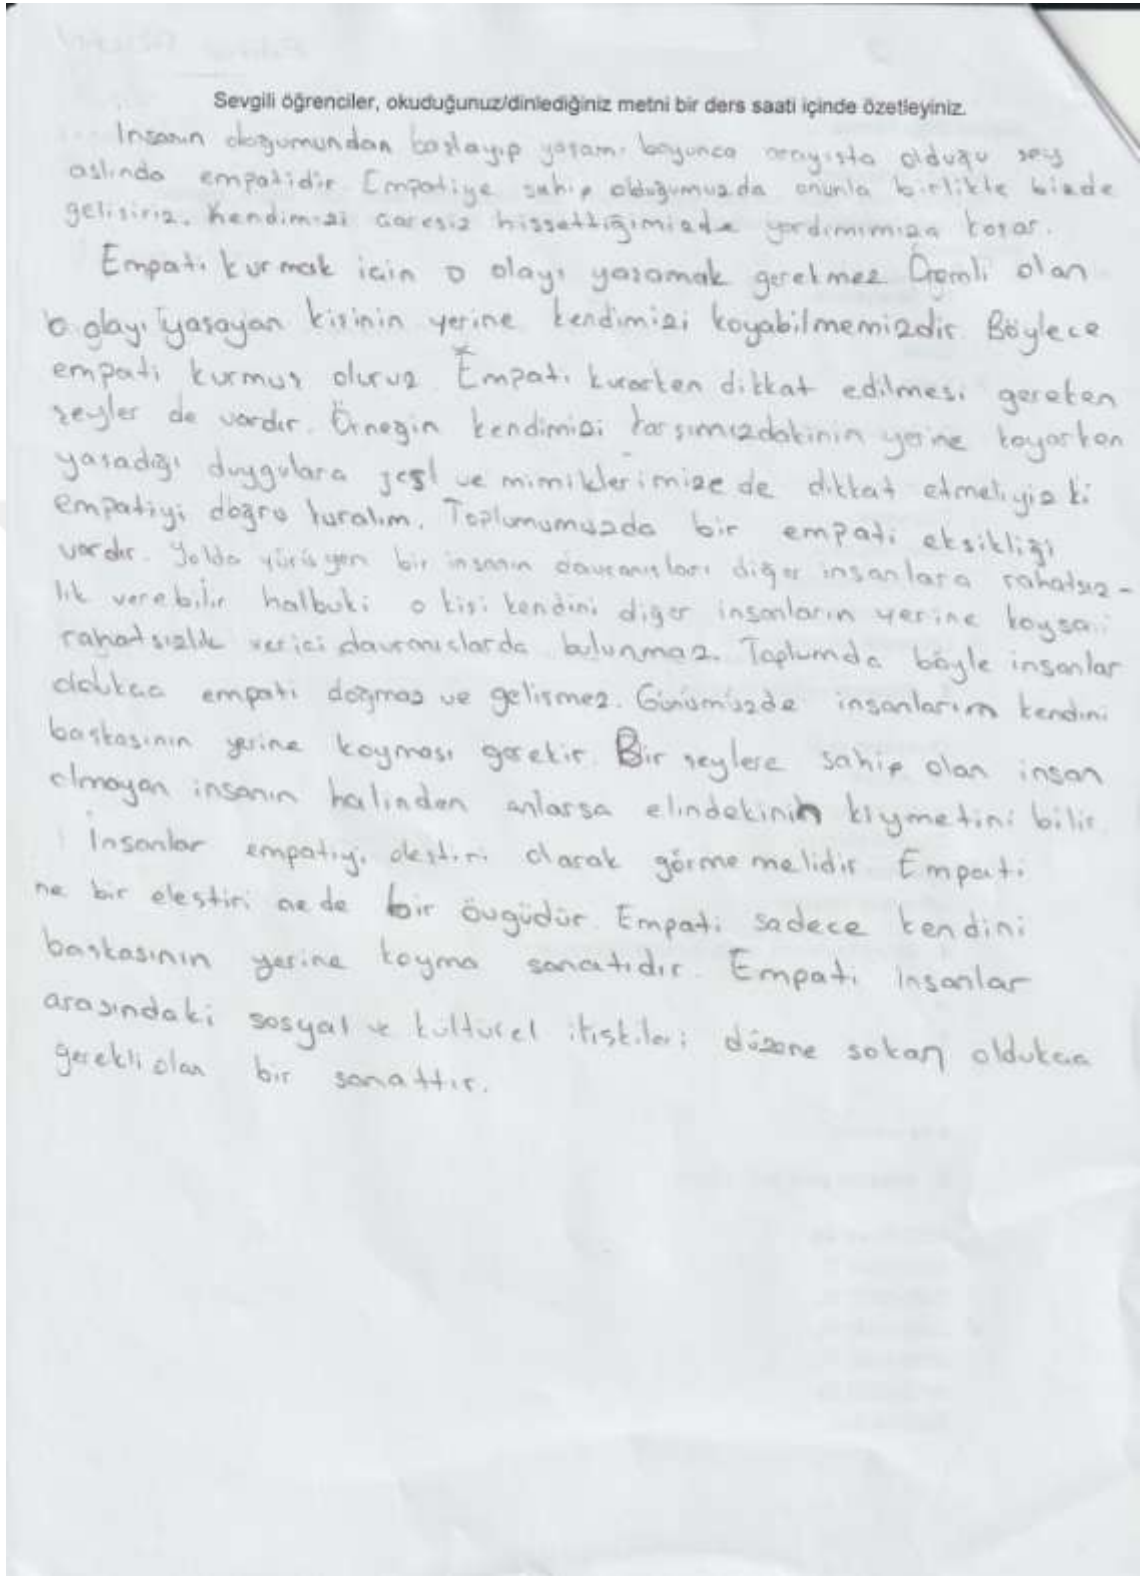 Sevgili öğrenciler, okuduğunuz/dinlediğiniz metni bir ders saati içinde özetleyiniz.
İnsanın doğumundan başlayıp yaşamı boyunca arayışta olduğu şey
aslında empatidir. Empatiye sahip olduğumuzda onunla birlikte bizde
gelişiriz. Kendimizi çaresiz hissettiğimizde yardımımıza koşar.
Empati kurmak için o olayı yaşamak gerekmez Önemli olan
o olayı yaşayan kişinin yerine kendimizi koyabilmemizdir. Böylece
empati kurmuş oluruz. Empati kurarken dikkat edilmesi gereken
şeyler de vardır. Örneğin kendimizi karşımızdakinin yerine koyarken
yaşadığı duygulara jest ve mimiklerimize de dikkat etmeliyiz ki
empatiyi doğru kuralım. Toplumumuzda bir empati eksikliği
vardır. Yolda yürüyen bir insanın davranışları diğer insanlara rahatsız-
lık verebilir halbuki o kişi kendini diğer insanların yerine koysa
rahatsızlık verici davranışlarda bulunmaz. Toplumda böyle insanlar
oldukça empati doğmaz ve gelişmez. Günümüzde insanların kendini
başkasının yerine koyması gerekir. Bir şeylere sahip olan insan
olmayan insanın halinden anlarsa elindekinin kıymetini bilir.
İnsanlar empatiyi eleştiri olarak görmemelidir. Empati
ne bir eleştiri ne de bir övgüdür. Empati sadece kendini
başkasının yerine koyma sanatıdır. Empati insanlar
arasındaki sosyal ve kültürel ilişkileri düzene sokan oldukça
gerekli olan bir sanattır.